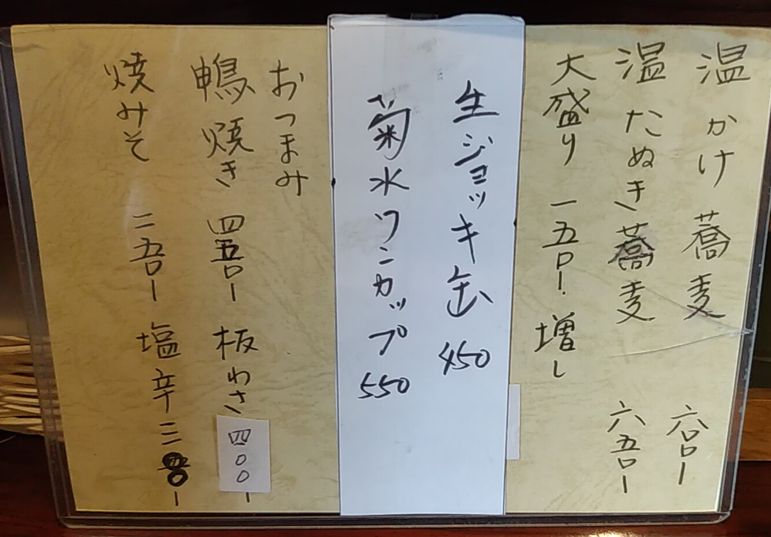 温 かけ 蕎麦 六〇〇ー
温 たぬき 蕎麦 六五〇ー
大盛り 一五〇ー 増し
生ジョッキ缶 450
菊水ワンカップ 550
おつまみ
鴨焼き 四五〇ー 板わさ 四〇〇ー
焼みそ 二五〇ー 塩辛 三